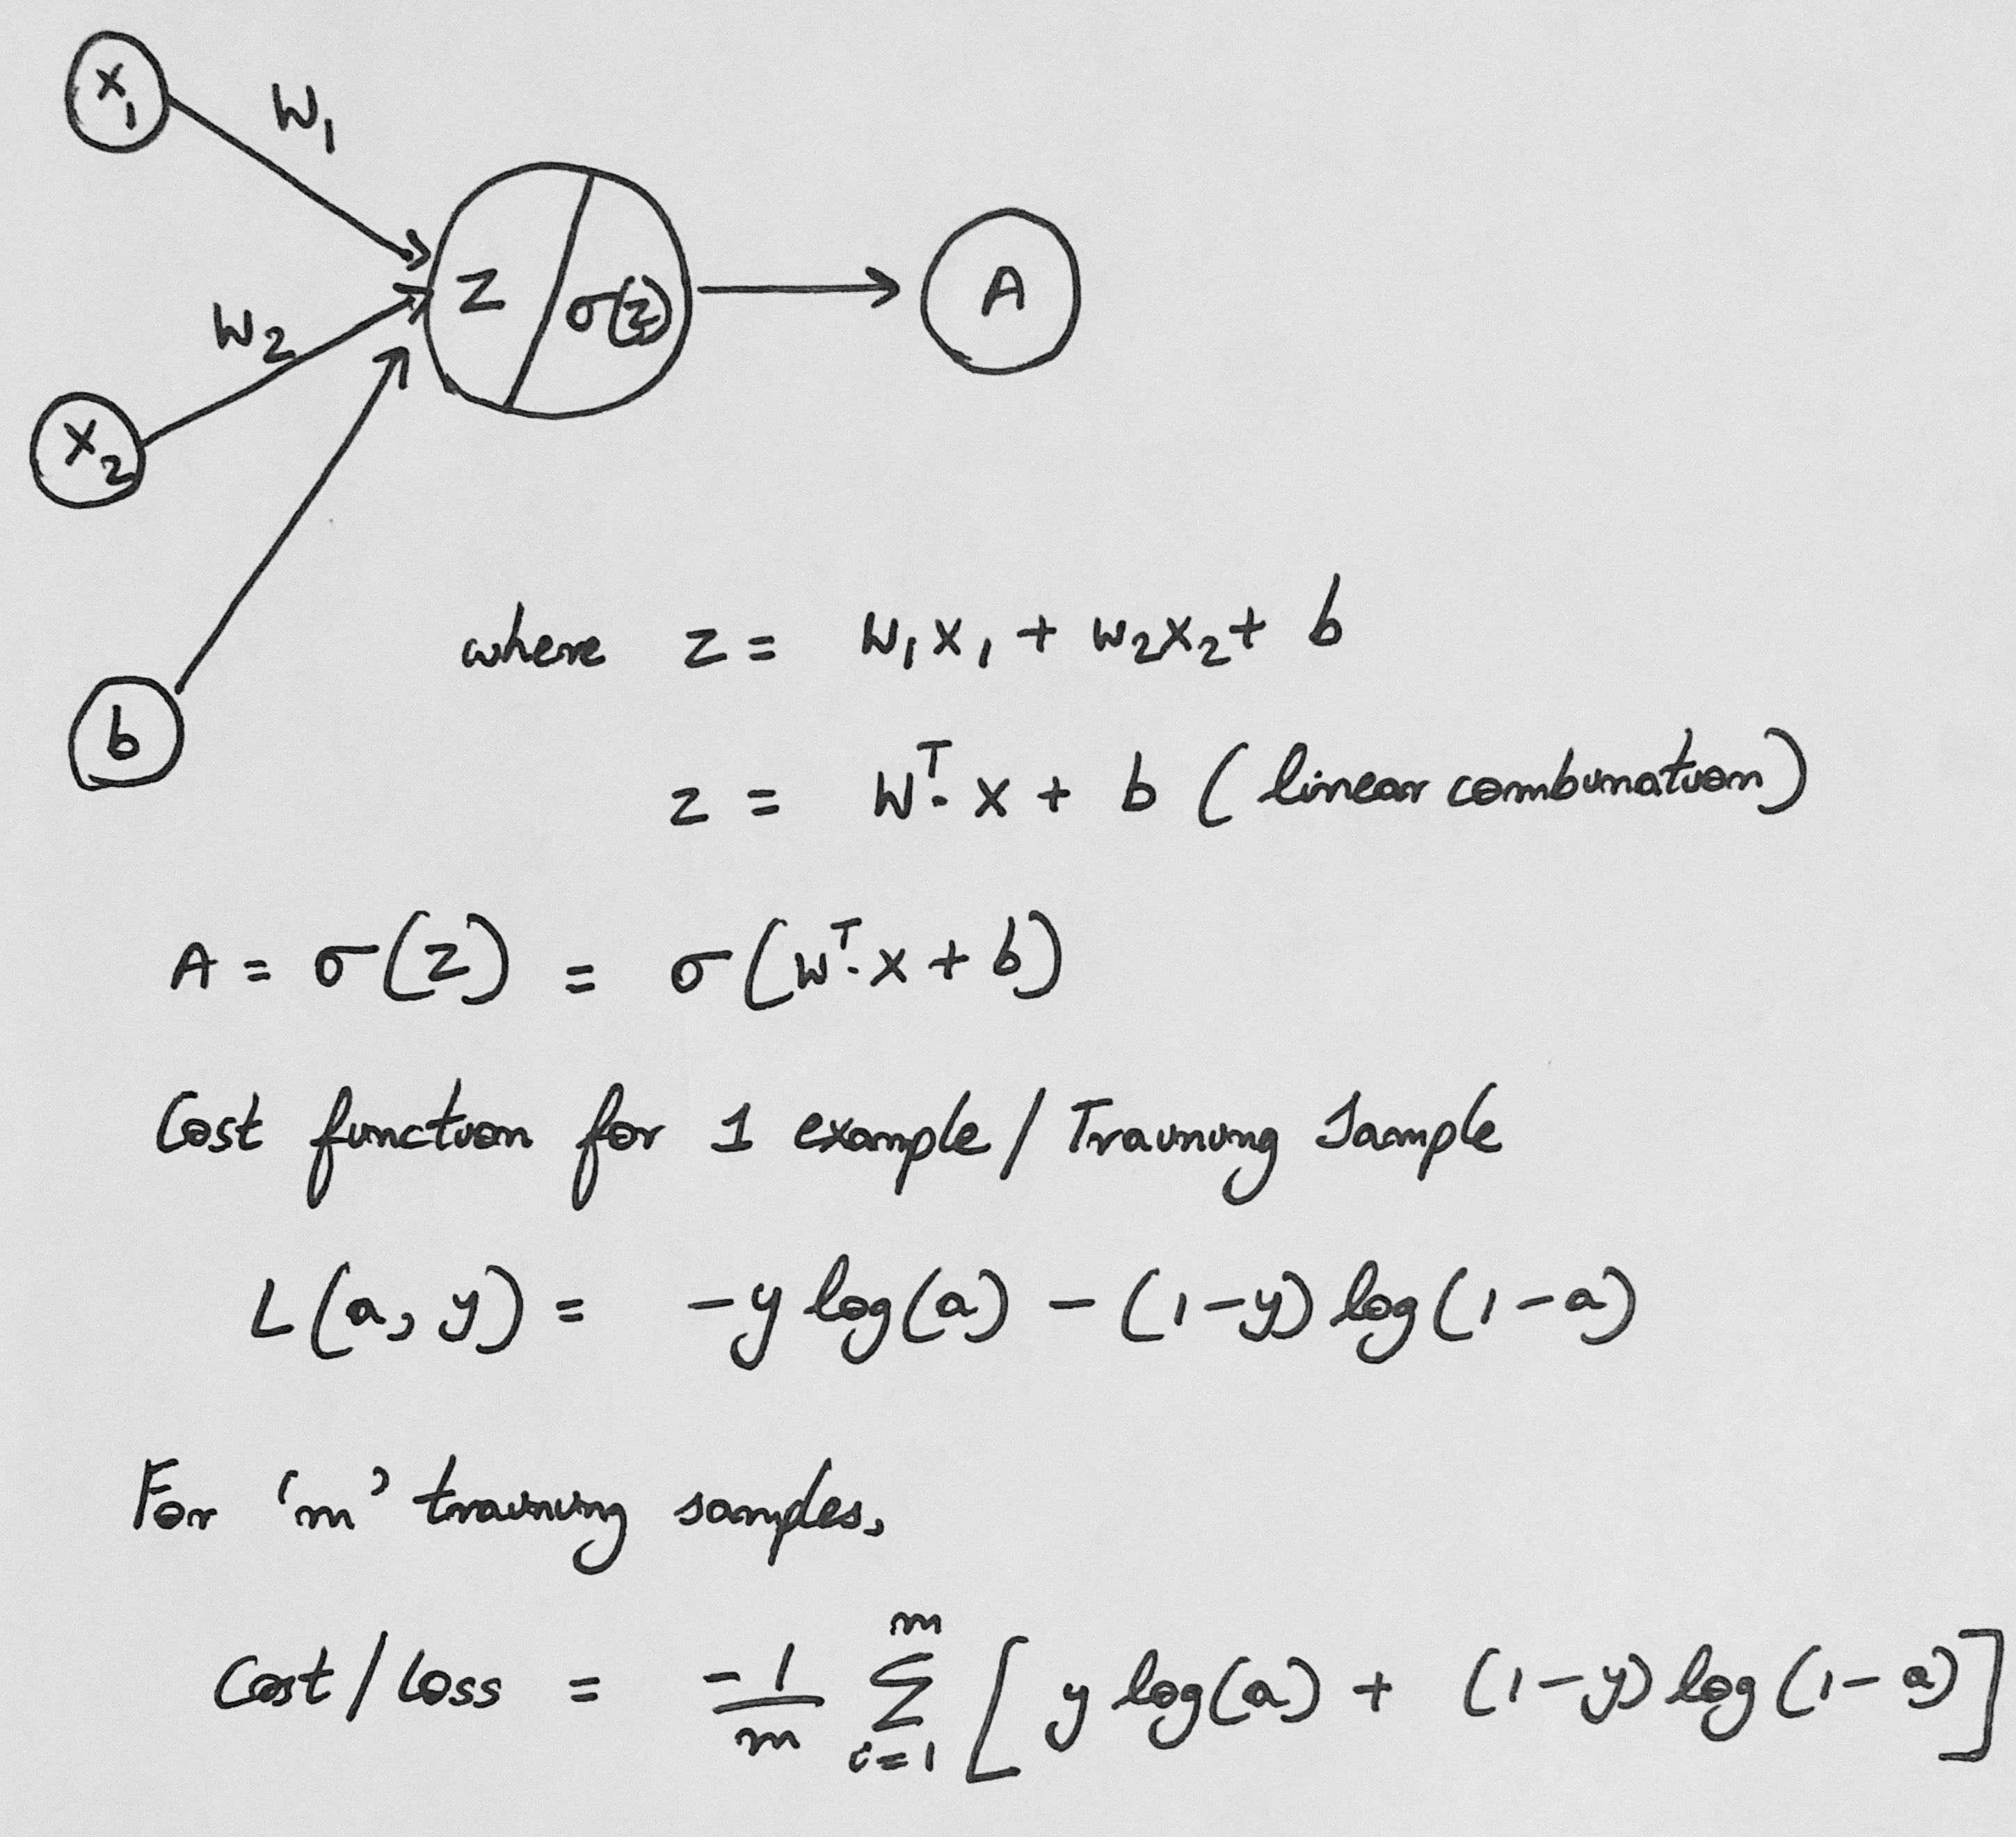 x₁
W₁
z
σ(z)
A
W₂
x₂
b
where z = W₁x₁ + W₂x₂ + b
z = Wᵀ. x + b (linear combination)
A = σ(z) = σ(Wᵀ. x + b)
Cost function for 1 example / Training Sample
L(a, y) = -y log(a) - (1-y) log(1-a)
For 'm' training samples,
Cost / Loss = -1/m ∑ᵢ₌₁ᵐ [y log(a) + (1-y) log(1-a)]